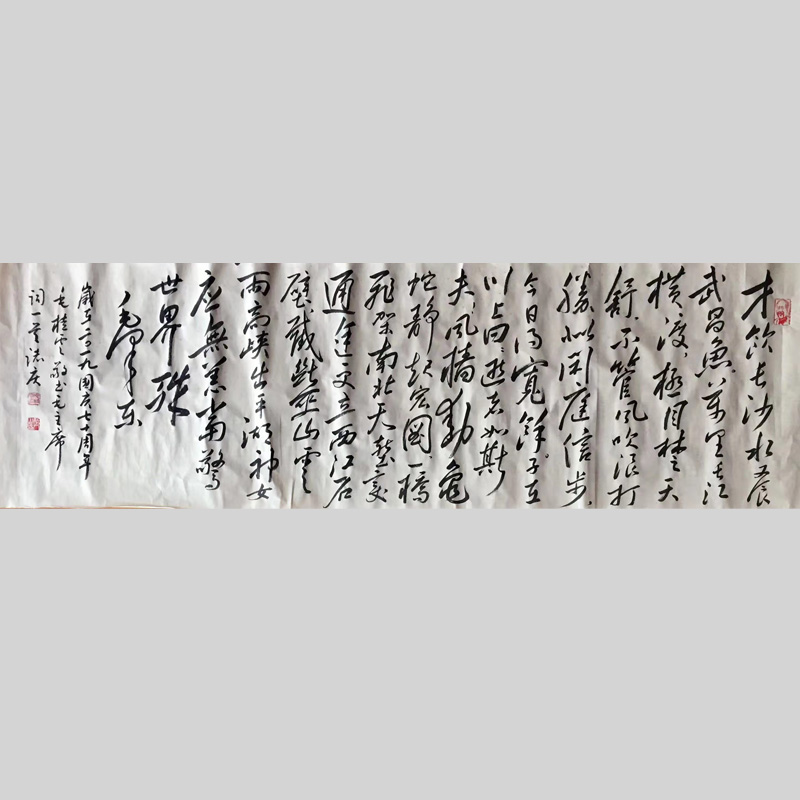 才饮长沙水又展
武昌魚萬里长江
横渡極目楚天
舒不管风吹浪打
勝似闲庭信步
今日得寬餘子在
川上曰逝者如斯
夫风樯動龟
蛇静起宏圖一橋
飛架南北天塹变
通途更立西江石
壁截断巫山雲
雨高峡出平湖神女
应無恙當驚
世界殊
毛泽东
歲在二〇一九國庆七十周年
毛桂雲敬书毛主席
词一首誌庆